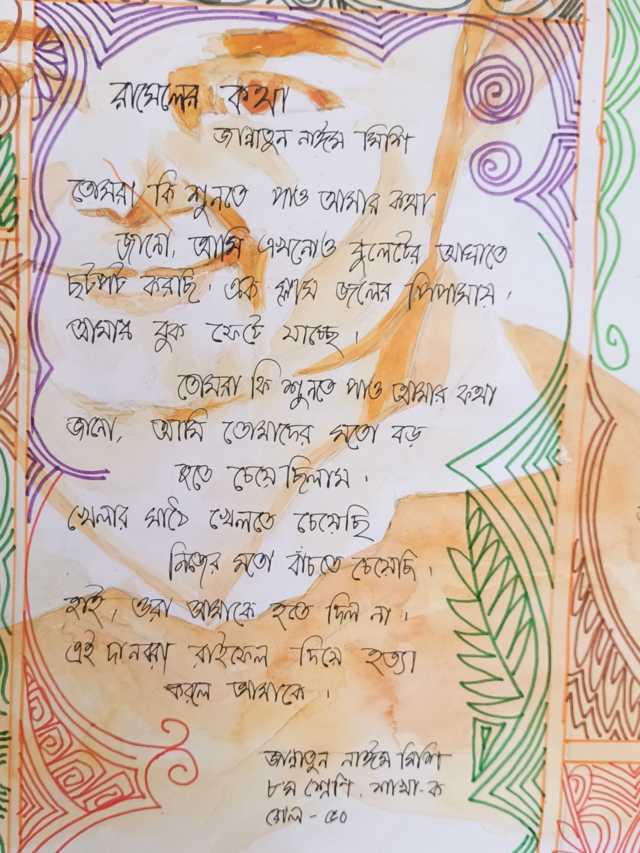 রাসেলের কথা
জান্নাতুন নাঈম মিশি
তোমরা কি শুনতে পাও আমার কথা
জানো, আমি এখনোও বুলেটের আঘাতে
ছটপট করছি। এক গ্লাস জলের পিপাসায়,
আমার বুক ফেটে যাচ্ছে।
তোমরা কি শুনতে পাও আমার কথা
জানো, আমি তোমাদের মতো বড়
হতে চেয়ে ছিলাম।
খেলার মাঠে খেলতে চেয়েছি
নিজের মতো বাঁচতে চেয়েছি।
হাই, ওরা আমাকে হতে দিল না।
এই দানবরা রাইফেল দিয়ে হত্যা
করলে আমাকে।
জান্নাতুন নাঈম মিশি
৮ম শ্রেণি, শাখা-ক
রোল - ৫০